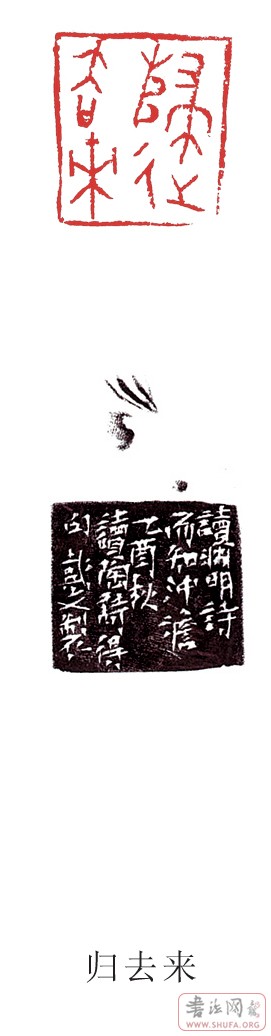 歸去來
讀淵明詩
而知沖澹
乙酉秋
讀陶詩得
句彭之製
归去来
书法网报
WWW.SHUFA.ORG